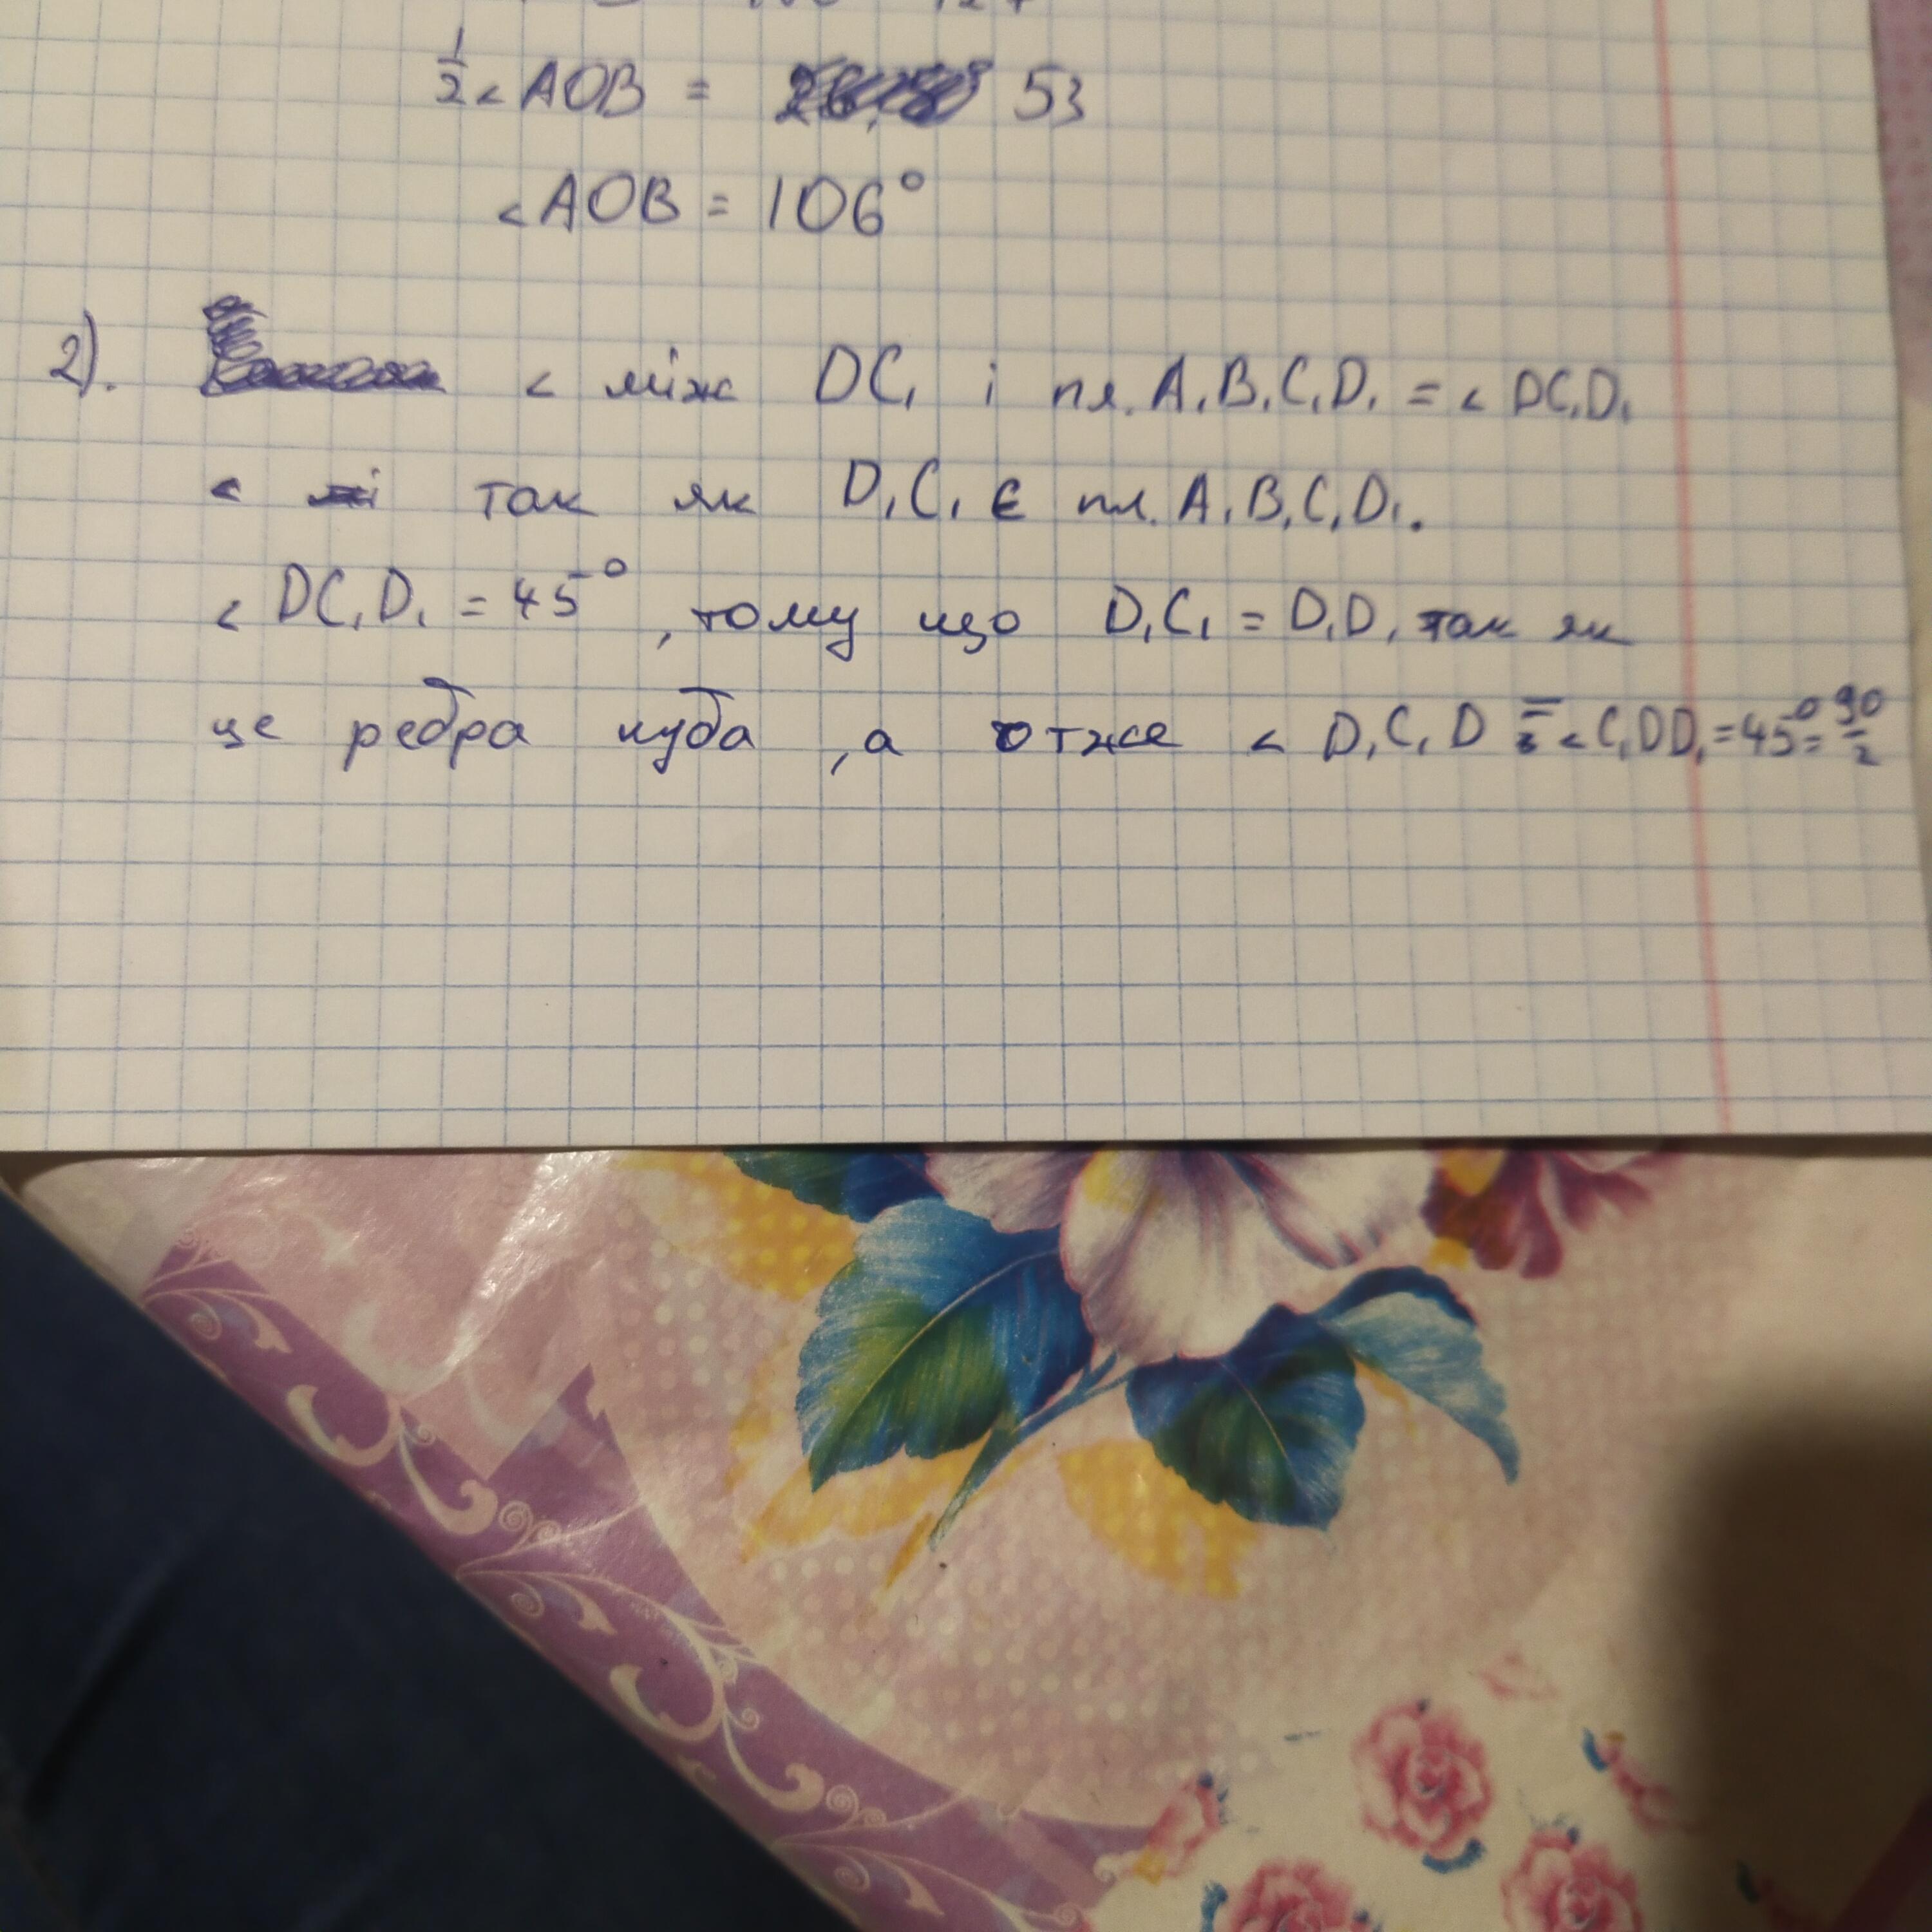 1/2 < AOB = 53
< AOB = 106°
2). < між DC₁ і пл. A₁B₁C₁D₁ = < DC₁D₁
< так як D₁C₁ є пл. A₁B₁C₁D₁.
< DC₁D₁ = 45°, тому що D₁C₁ = D₁D, так як
це ребра куба, а отже < D₁C₁D = < C₁DD₁ = 45° = 90/2